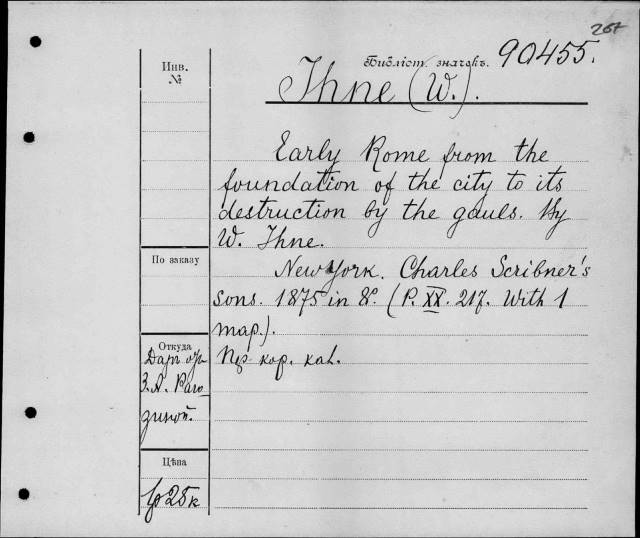 267
Библіот. значекъ. 90455.
Инв.
№
Ihne (W.).
Early Rome from the
foundation of the city to its
destruction by the gauls. By
W. Ihne.
По заказу
New York. Charles Scribner's
sons. 1875 in 8º. (P. XX. 217. With 1
map.).
Откуда
Даръ отъ
З. А. Раго-
зиной.
кор. kal.
Цѣна
25 к